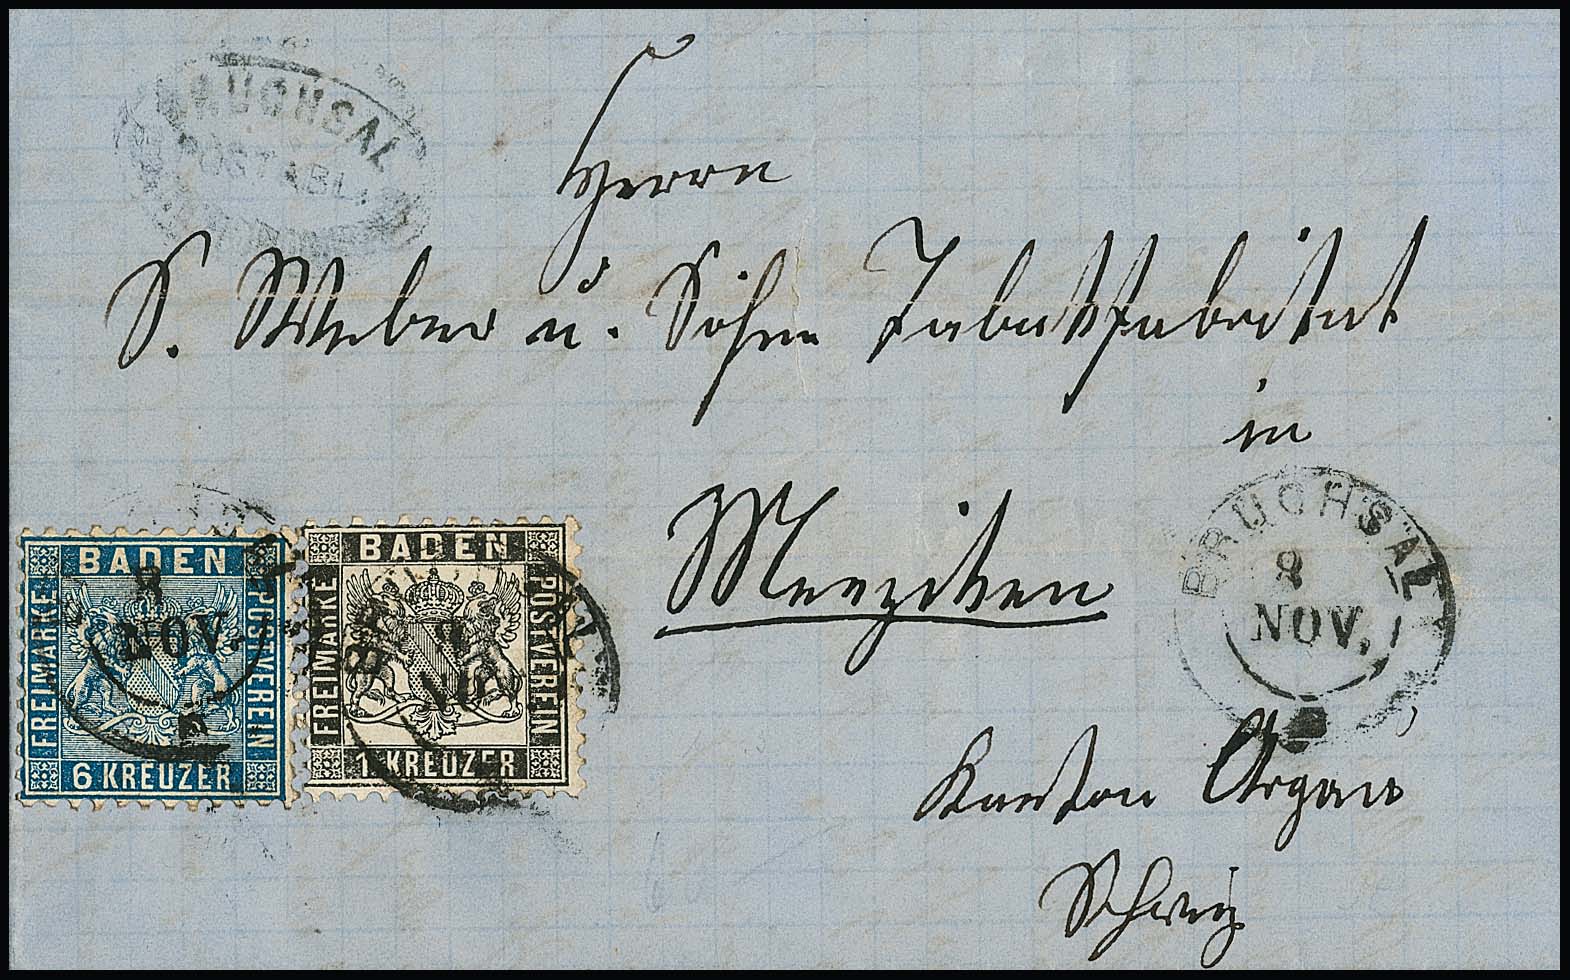 BRUCHSAL
POSTABL.
Herrn
S. Weber u. Söhne Tabakfabrikat
in
Menziken
Kanton Argau
Schweiz
BRUCHSAL
8
NOV.
BADEN
FREIMARKE
POSTVEREIN
6 KREUZER
8
NOV.
BADEN
FREIMARKE
POSTVEREIN
1 KREUZER
8
NO